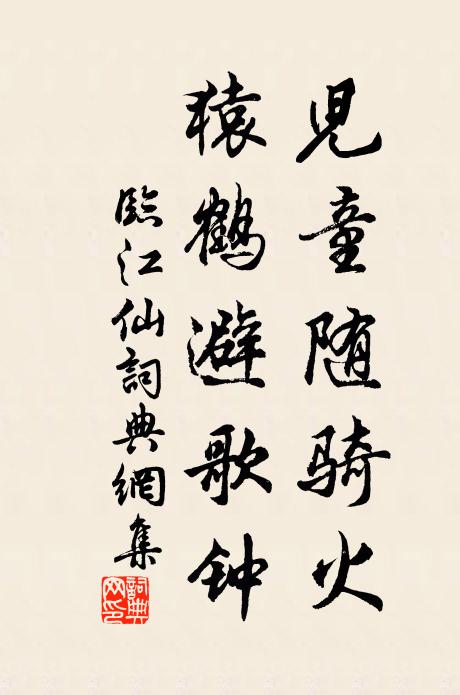 兒童随骑火
猿鶴避歌钟
臨江仙詞典網集
詞典
网印